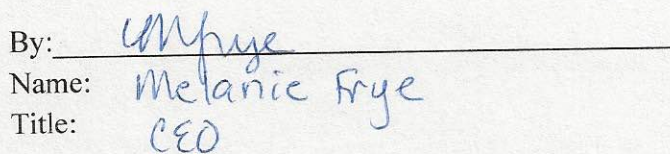 By: UMFrye
Name: Melanie Frye
Title: CEO